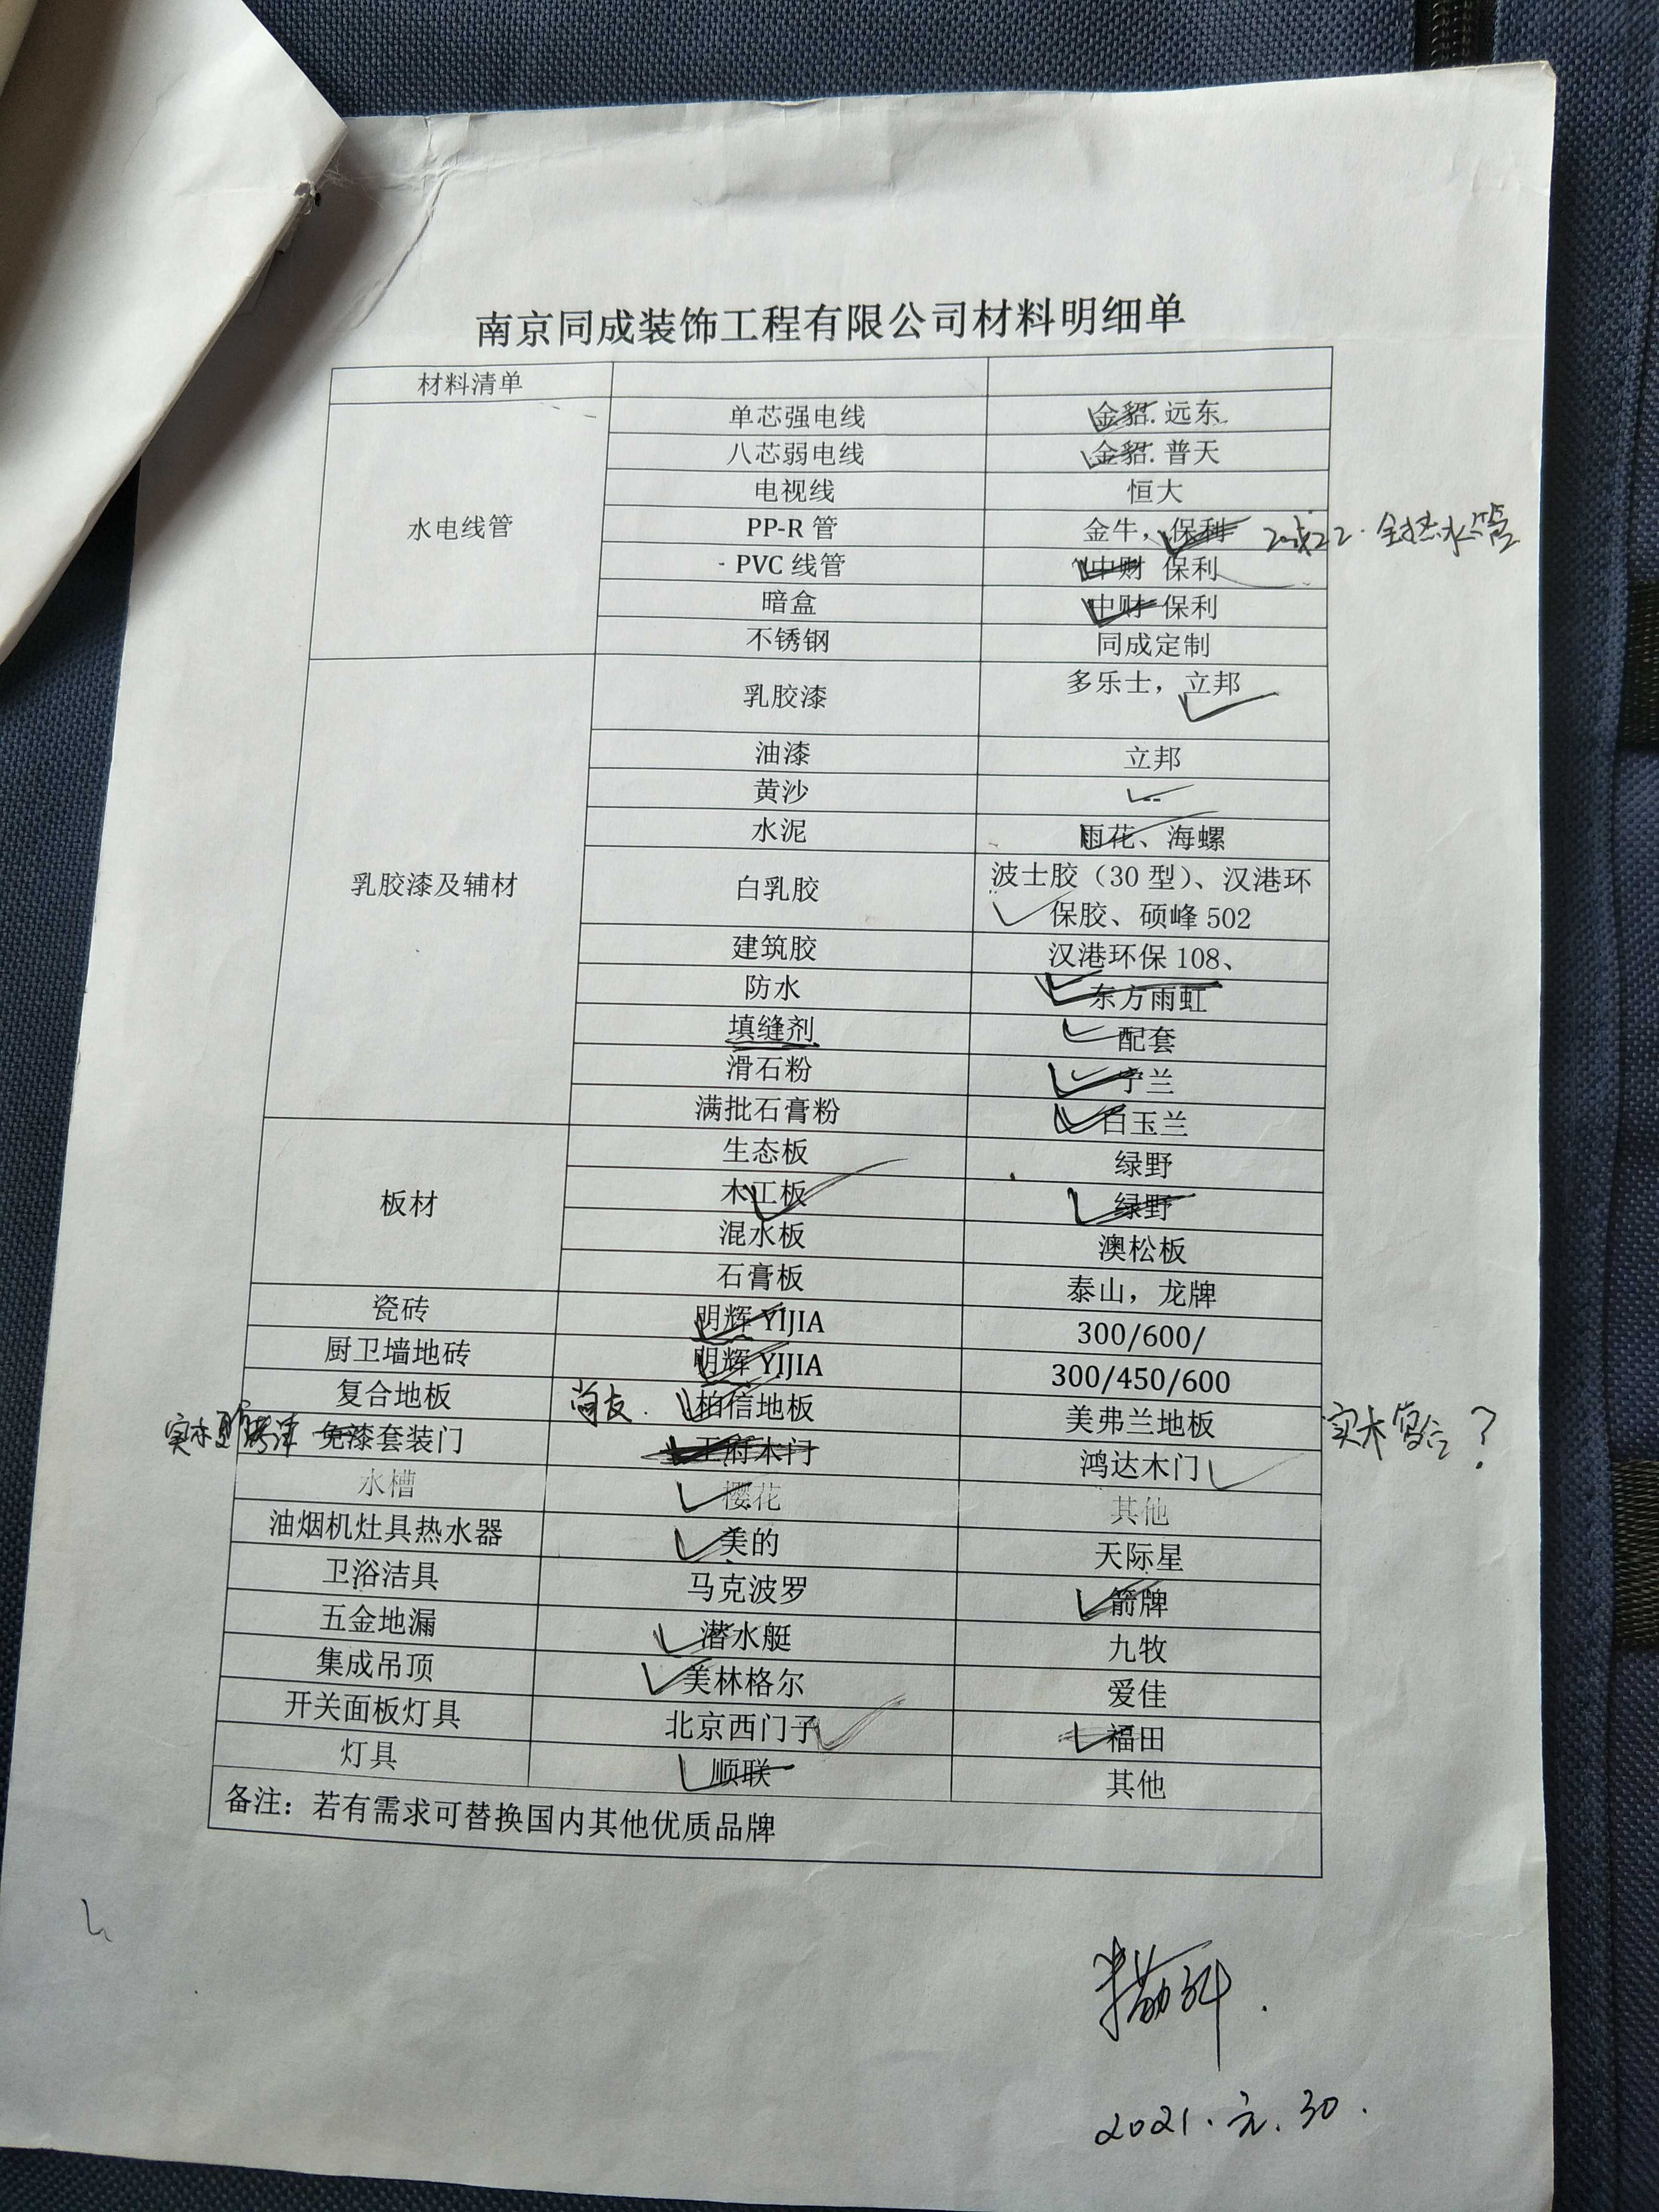 南京同成装饰工程有限公司材料明细单
材料清单
水电线管
单芯强电线 金貂.远东
八芯弱电线 金貂.普天
电视线 恒大
PP-R 管 金牛，保利
全热水管
PVC 线管 中财 保利
暗盒 中财 保利
不锈钢 同成定制
乳胶漆及辅材
乳胶漆 多乐士，立邦
油漆 立邦
黄沙
水泥 雨花、海螺
白乳胶 波士胶（30 型）、汉港环
保胶、硕峰 502
建筑胶 汉港环保 108、
防水 东方雨虹
填缝剂 配套
滑石粉 宁兰
满批石膏粉 白玉兰
板材
生态板 绿野
木工板 绿野
混水板 澳松板
石膏板 泰山，龙牌
瓷砖 明辉 YIJIA 300/600/
厨卫墙地砖 明辉 YIJIA 300/450/600
复合地板 尚友. 柏信地板 美弗兰地板 实木复合？
实木 免漆套装门 王府木门 鸿达木门
水槽 樱花 其他
油烟机灶具热水器 美的 天际星
卫浴洁具 马克波罗 箭牌
五金地漏 潜水艇 九牧
集成吊顶 美林格尔 爱佳
开关面板灯具 北京西门子 福田
灯具 顺联 其他
备注：若有需求可替换国内其他优质品牌
2021.元.30.